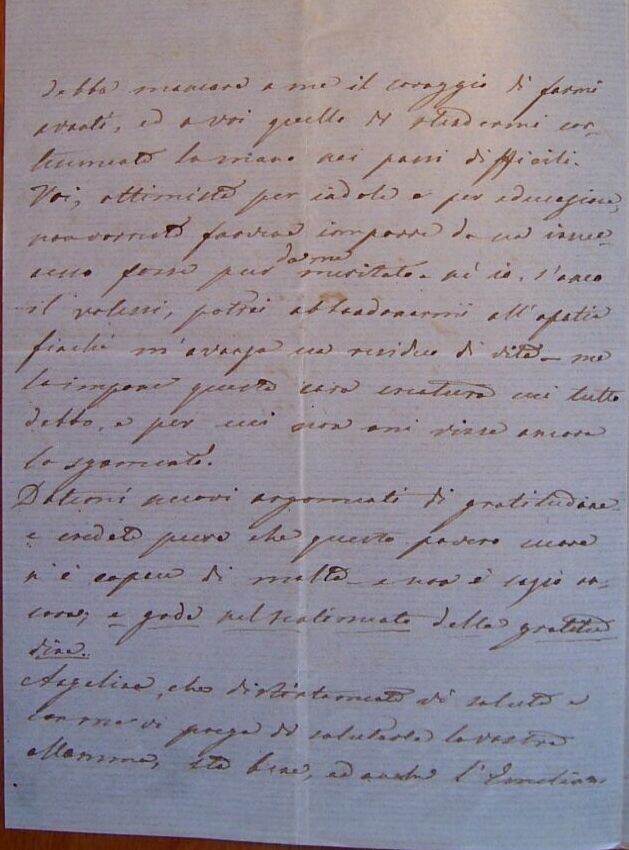 debba mancare a me il coraggio di farmi
avanti, ed a voi quello di stendermi cor-
tesemente la mano nei passi difficili.
Voi, ottimista per indole e per educazione,
non vorrete farvene imporre da un insuc-
cesso forse pur da me meritato - nè io, s'anco
il volessi, potrei abbandonarmi all'apatia
finchè m'avanza un residuo di vita - me
lo impone questa cara creatura cui tutto
debbo, e per cui non mi vinse ancora
lo sgomento!
Datemi nuovi argomenti di gratitudine
e credete pure che questo povero cuore
n'è capace di molta - e non è sazio an-
cora; e gode nel sentimento della gratitu
dine.
Angelina, che distintamente vi saluta e
con me vi prega di salutarle la vostra
Mamma, sta bene, ed anche l'